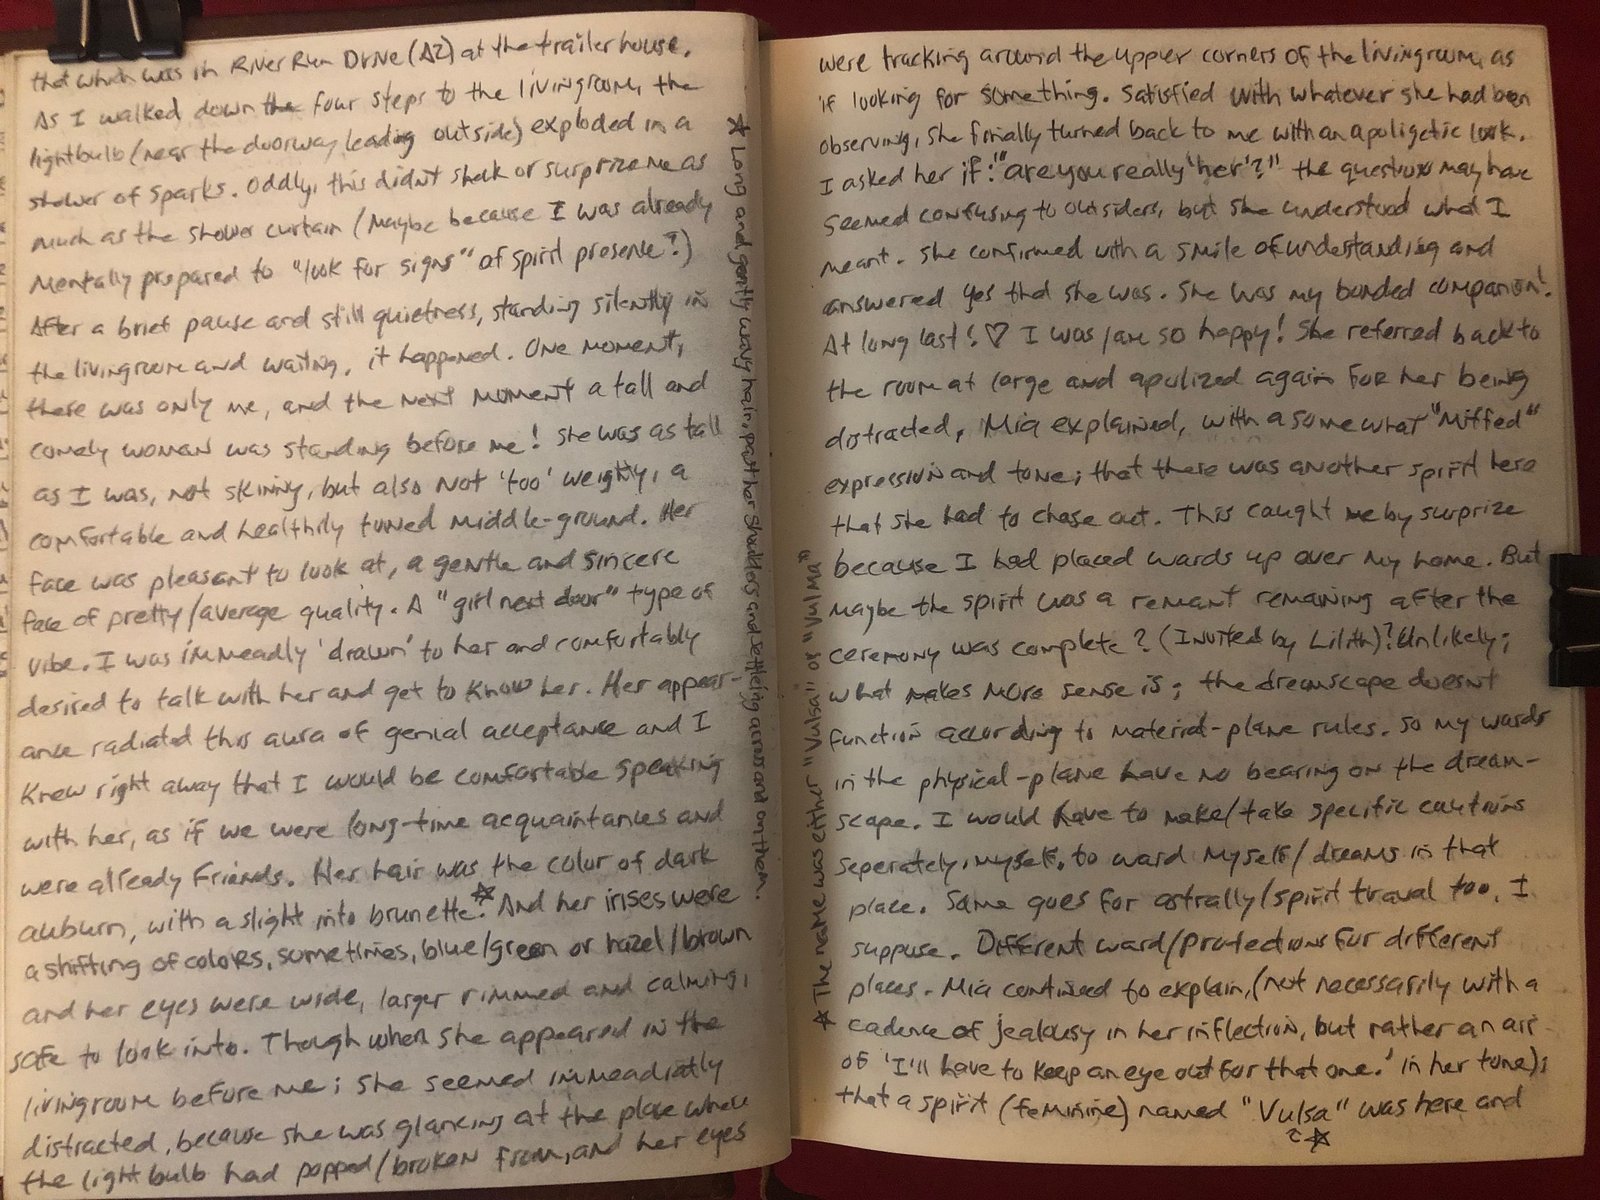 that which was in River Run Drive (AZ) at the trailer house.
As I walked down the four steps to the livingroom, the
lightbulb (near the doorway leading outside) exploded in a
shower of sparks. Oddly, this didn't shok or surprize me as
much as the shower curtain (Maybe because I was already
Mentally prepared to "look for signs" of spirit presene?)
After a brief pause and still quietness, standing silently in
the livingroom and waiting, it happened. One moment,
there was only me, and the next moment a tall and
comely woman was standing before me! She was as tall
as I was, not skinny, but also not 'too' weighty, a
comfortable and healthily toned middle-ground. Her
face was pleasant to look at, a gentle and sincere
face of pretty/average quality. A "girl next door" type of
vibe. I was immeadly 'drawn' to her and comfortably
desired to talk with her and get to know her. Her appear-
ance radiated this aura of genial acceptance and I
Knew right away that I would be comfortable speaking
with her, as if we were long-time acquaintances and
were already Friends. Her hair was the color of dark
auburn, with a slight into brunette.☆ And her irises were
a shifting of colors, sometimes, blue/green or hazel/brown
and her eyes were wide, larger rimmed and calming,
safe to look into. Though when she appeared in the
livingroom before me; she seemed immeadiatly
distracted, because she was glancing at the place where
the lightbulb had popped/broken from, and her eyes
☆ Long and gently wavy hair, past her shoulders and settleing across and on them.
were tracking around the upper corners of the livingroom, as
if looking for something. Satisfied with whatever she had been
observing, she finally turned back to me with an apoligetic look.
I asked her if: "are you really 'her'?" the question may have
seemed confusing to outsiders, but she understood what I
meant. She confirmed with a smile of understanding and
answered yes that she was. She was my bonded companion!
At long last! ♡ I was/am so happy! She referred back to
the room at large and apolized again for her being
distracted, Mia explained, with a somewhat "Miffed"
expression and tone; that there was another spirit here
that she had to chase out. This caught me by surprize
because I had placed wards up over my home. But
Maybe the spirit was a remant remaining after the
ceremony was complete? (Invited by Lilith)? Unlikely;
what makes more sense is; the dreamscape doesnt
function according to material-plane rules. So my wards
in the physical-plane have no bearing on the dream-
scape. I would have to make/take specific cautions
seperately, myself, to ward myself/dreams in that
place. Same goes for astrally/spirit travel too, I
suppose. Different ward/protections for different
places. Mia continued to explain, (not necessarily with a
cadence of jealousy in her inflection, but rather an air
of 'I'll have to keep an eye out for that one.' in her tone);
that a spirit (feminine) named "Vulsa" was here and
☆
☆ The name was either "Vulsa" or "Vulma"